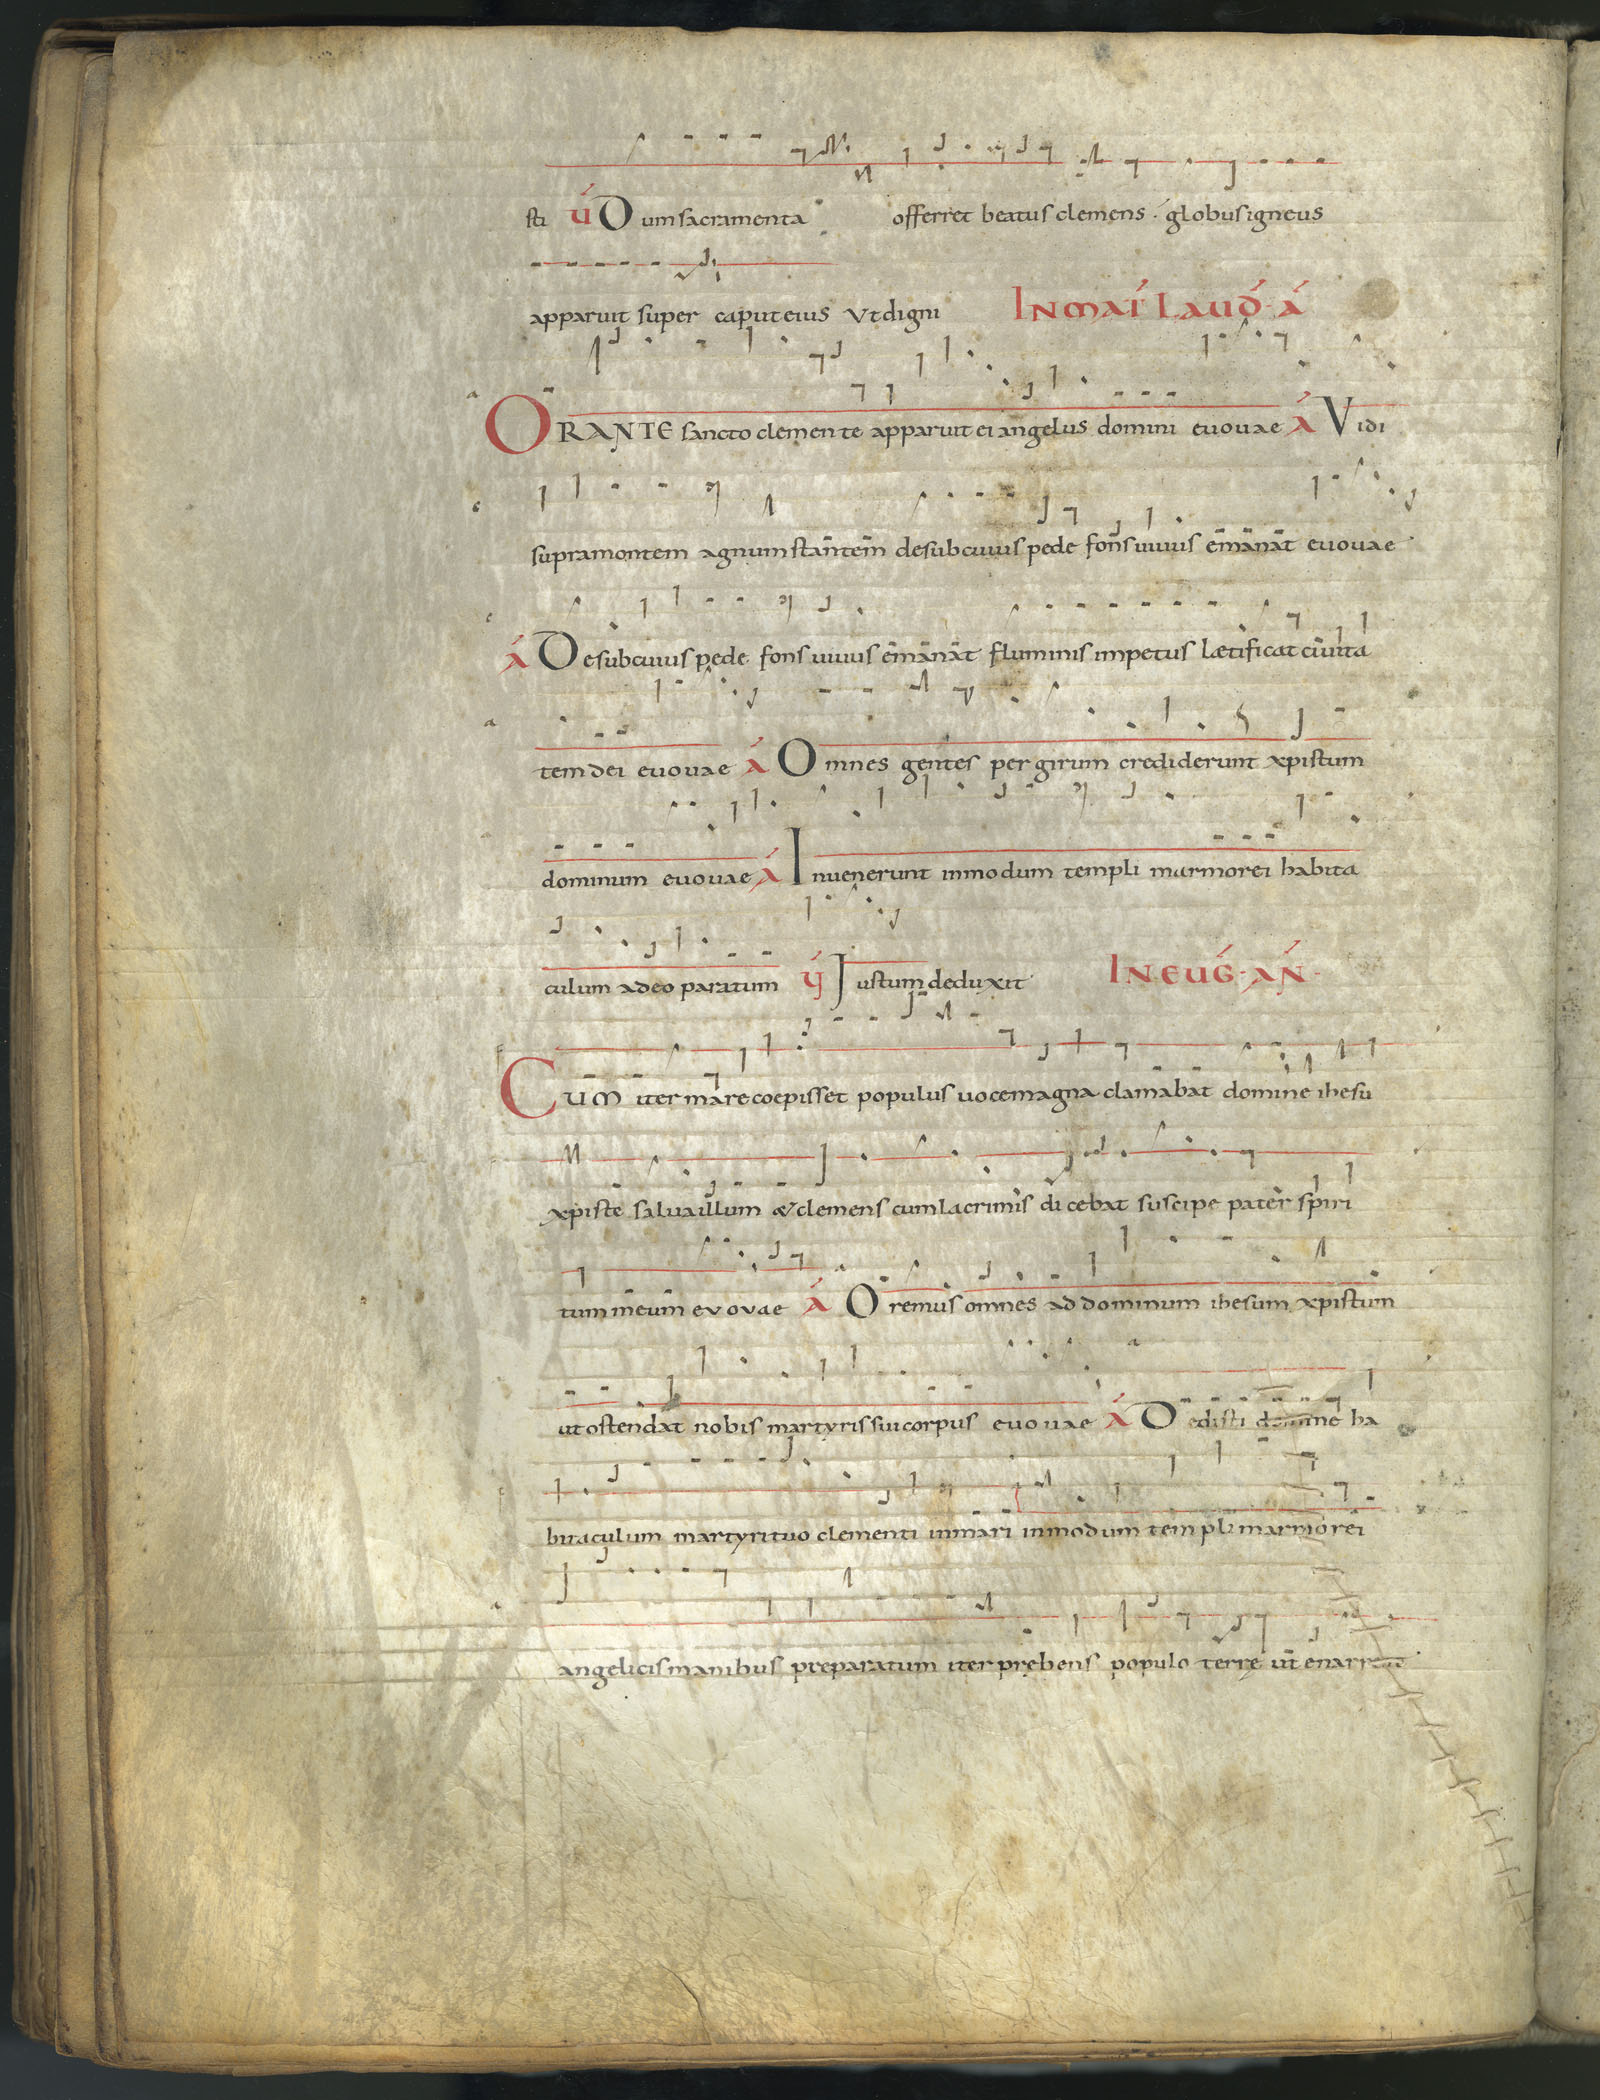 sti V́ Dum sacramenta offerret beatus clemens · globus igneus
apparuit super caput eius Vt digni IN MAT́ LAUD́ · Á
ORANTE sancto clemente apparuit ei angelus domini euouae Á Vidi
supra montem agnum stantem de sub cuius pede fons uiuus emanat euouae
Á De sub cuius pede fons uiuus emanat fluminis impetus lætificat ciuita
tem dei euouae Á Omnes gentes per girum crediderunt xpistum
dominum euouae Á Inuenerunt in modum templi marmorei habita
culum a deo paratum Ý Iustum deduxit IN EUG̃ · AŃ ·
CUM iter mare coepisset populus uoce magna clamabat domine ihesu
xpiste salua illum & clemens cum lacrimis dicebat suscipe pater spiri
tum meum evovae Á Oremus omnes ad dominum ihesum xpistum
ut ostendat nobis martyris sui corpus euouae Á Dedisti domine ha
bitaculum martyri tuo clementi in mari in modum templi marmorei
angelicis manibus preparatum iter prębens populo terrę ut enarrent